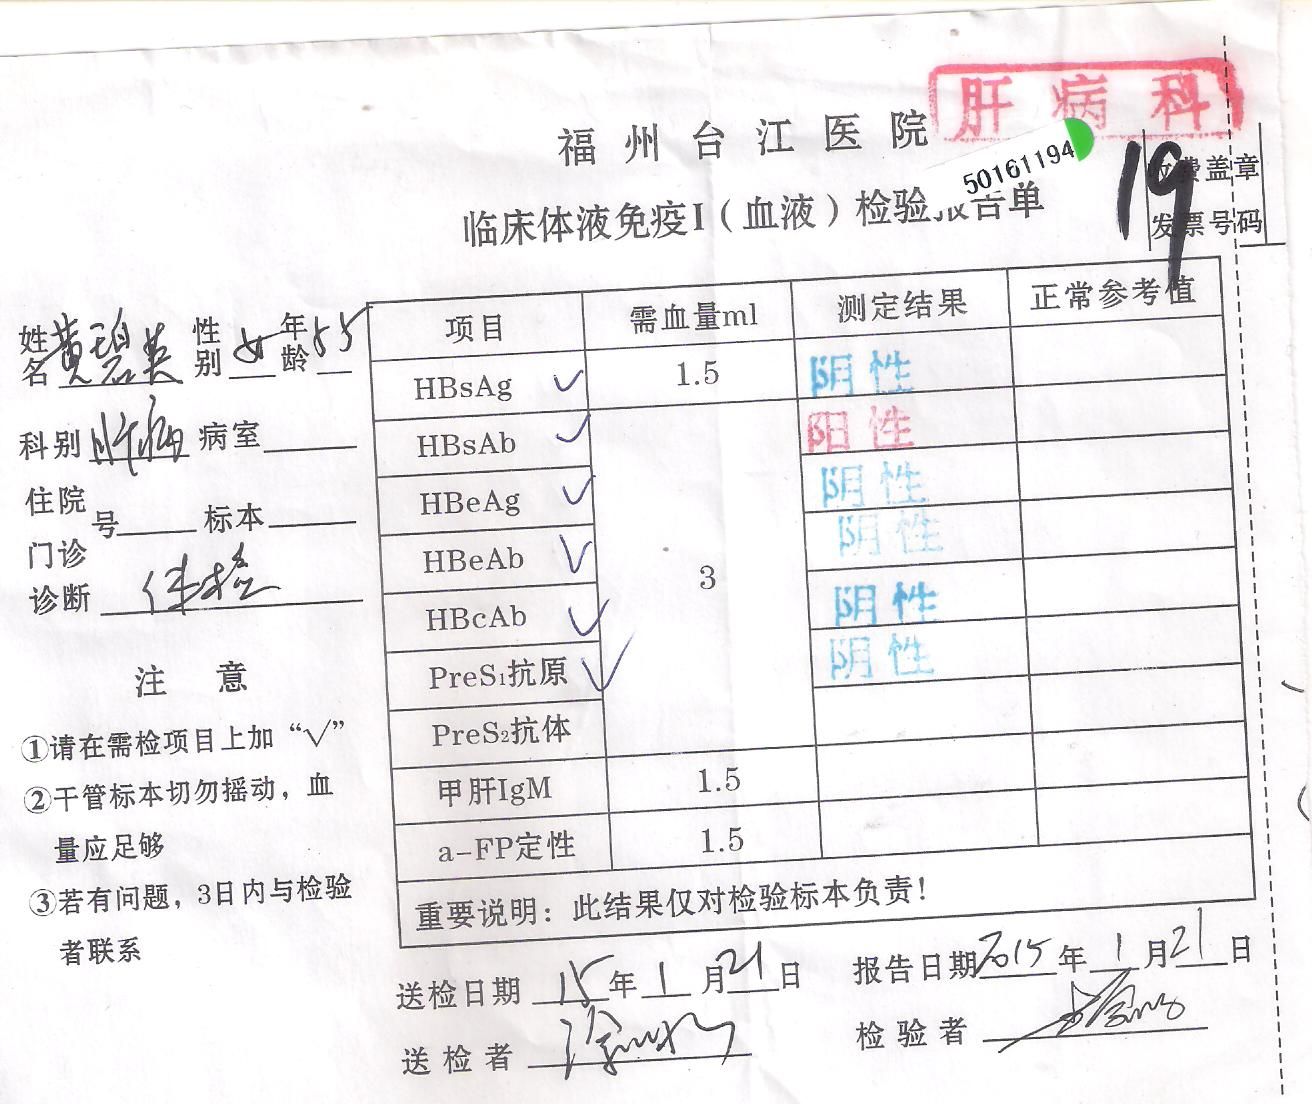 肝病科
福州台江医院
50161194
19
收费盖章
临床体液免疫I（血液）检验报告单
发票号码
姓名 黄碧英 性别 女 年龄 55
科别 肝病 病室
住院
门诊 号 标本
诊断 体检
注 意
①请在需检项目上加“√”
②干管标本切勿摇动，血
量应足够
③若有问题，3日内与检验
者联系
项目 需血量ml 测定结果 正常参考值
HBsAg √ 1.5 阴性
HBsAb √ 阳性
HBeAg √ 阴性
HBeAb √ 3 阴性
HBcAb √ 阴性
PreS₁抗原 √ 阴性
PreS₂抗体
甲肝IgM 1.5
a-FP定性 1.5
重要说明：此结果仅对检验标本负责！
送检日期 15年1月21日 报告日期 2015年1月21日
送检者 检验者